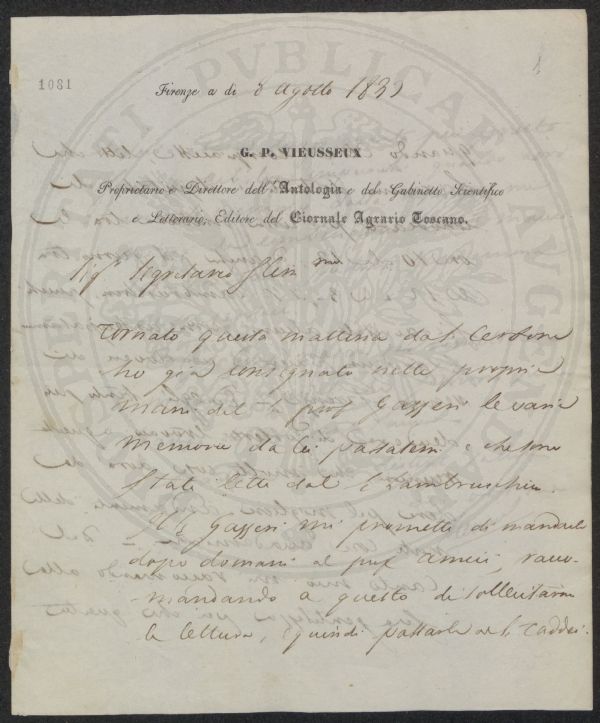 1081
Firenze a dì 8 agosto 183
G. P. VIEUSSEUX
Proprietario e Direttore dell' Antologia e del Gabinetto Scientifico
e Letterario, Editore del Giornale Agrario Toscano.
Sigr Segretario
Tornato questa mattina da S. Cerbone
ho già consignato nelle proprie
mani del Sr prof Gazzeri le varie
memorie da lei passatemi e che sono
state lette dal Lambruschini.
Il Sr Gazzeri mi promette di mandarle
dopo domani al prof Amici, racco-
mandando a questo di sollecitarne
la lettura, e quindi passarle al Sr Taddei.